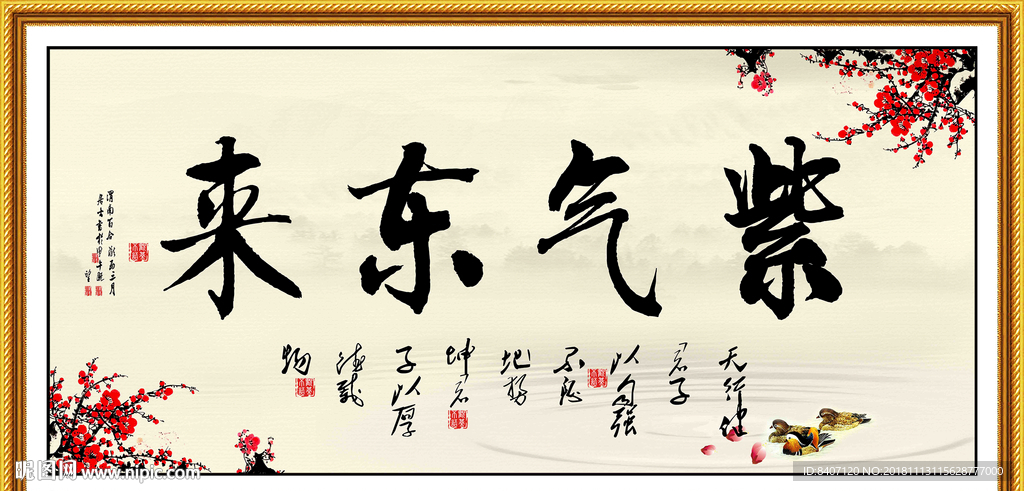 紫气东来
天行健
君子
以自强
不息
地势
坤君
子以厚
德载
物
昵图网 www.nipic.com
ID:8407120 NO:20181113115628777000